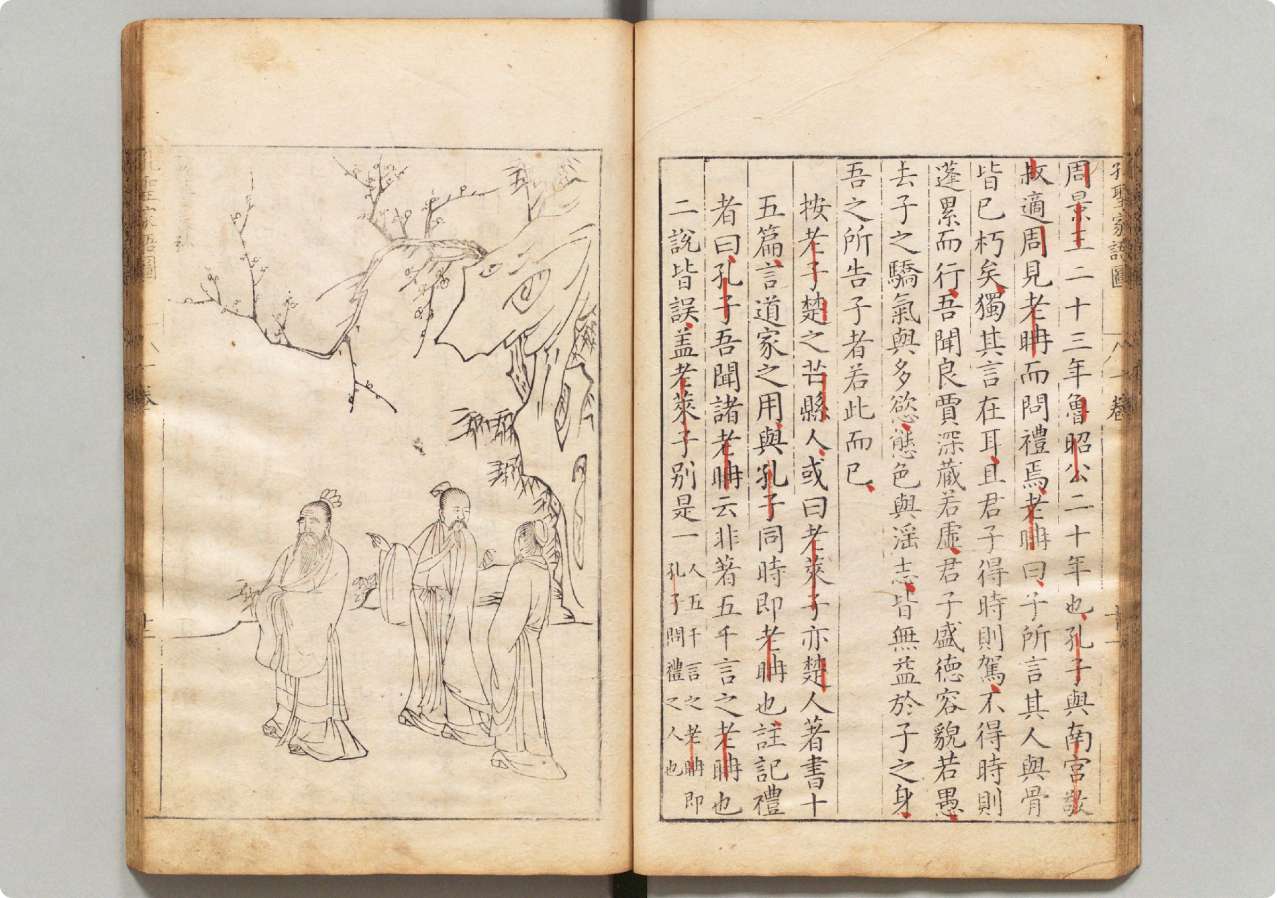 孔聖家語圖
八一卷
十一
周景王二十三年魯昭公二十年也孔子與南宮敬
叔適周見老聃而問禮焉老聃曰子所言其人與骨
皆已朽矣獨其言在耳且君子得時則駕不得時則
蓬累而行吾聞良賈深藏若虛君子盛德容貌若愚
去子之驕氣與多慾態色與淫志皆無益於子之身
吾之所告子者若此而已
按老子楚之苦縣人或曰老萊子亦楚人著書十
五篇言道家之用與孔子同時即老聃也註記禮
者曰孔子吾聞諸老聃云非著五千言之老聃也
二說皆誤盖老萊子别是一
人五千言之老聃即
孔子問禮之人也